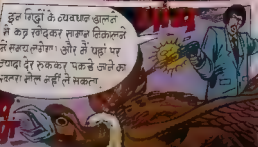 इन गिद्धों के व्यवधान डालने
से कब्र खोदकर सामान निकालने
में समय लगेगा। और मैं यहां पर
ज्यादा देर रुककर पकड़े जाने का
खतरा मोल नहीं ले सकता.
धांय